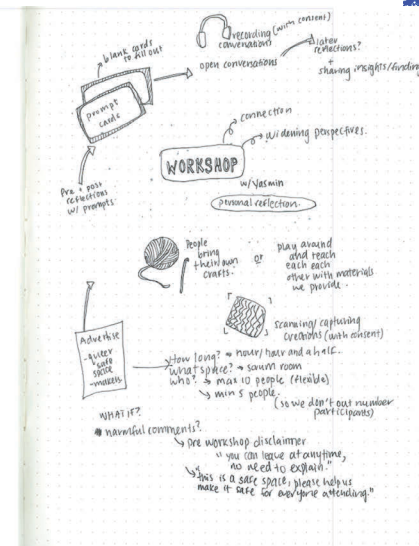 recording (with consent)
conversations
later
reflections?
+
sharing insights/finding
blank cards
to fill out
open convenations
prompt
cards
connection
widening perspectives.
WORKSHOP
w/Yasmin
personal reflection.
Pre + post
reflections
w/ prompts.
People
bring
their own
crafts.
or
play around
and teach
each each
other with materials
we provide.
Scanning/capturing
creations (with consent)
Advertise
-queer
safe
space
-makers
How long? → hour/hour and a half.
what space? →
room
who? → max 10 people (flexible)
min 5 people.
(so we don't out number
participants)
WHAT IF?
harmful comments?
pre workshop disclaimer
"you can leave at anytime,
no need to explain."
"this is a safe space, please help us
make it safe for everyone attending."